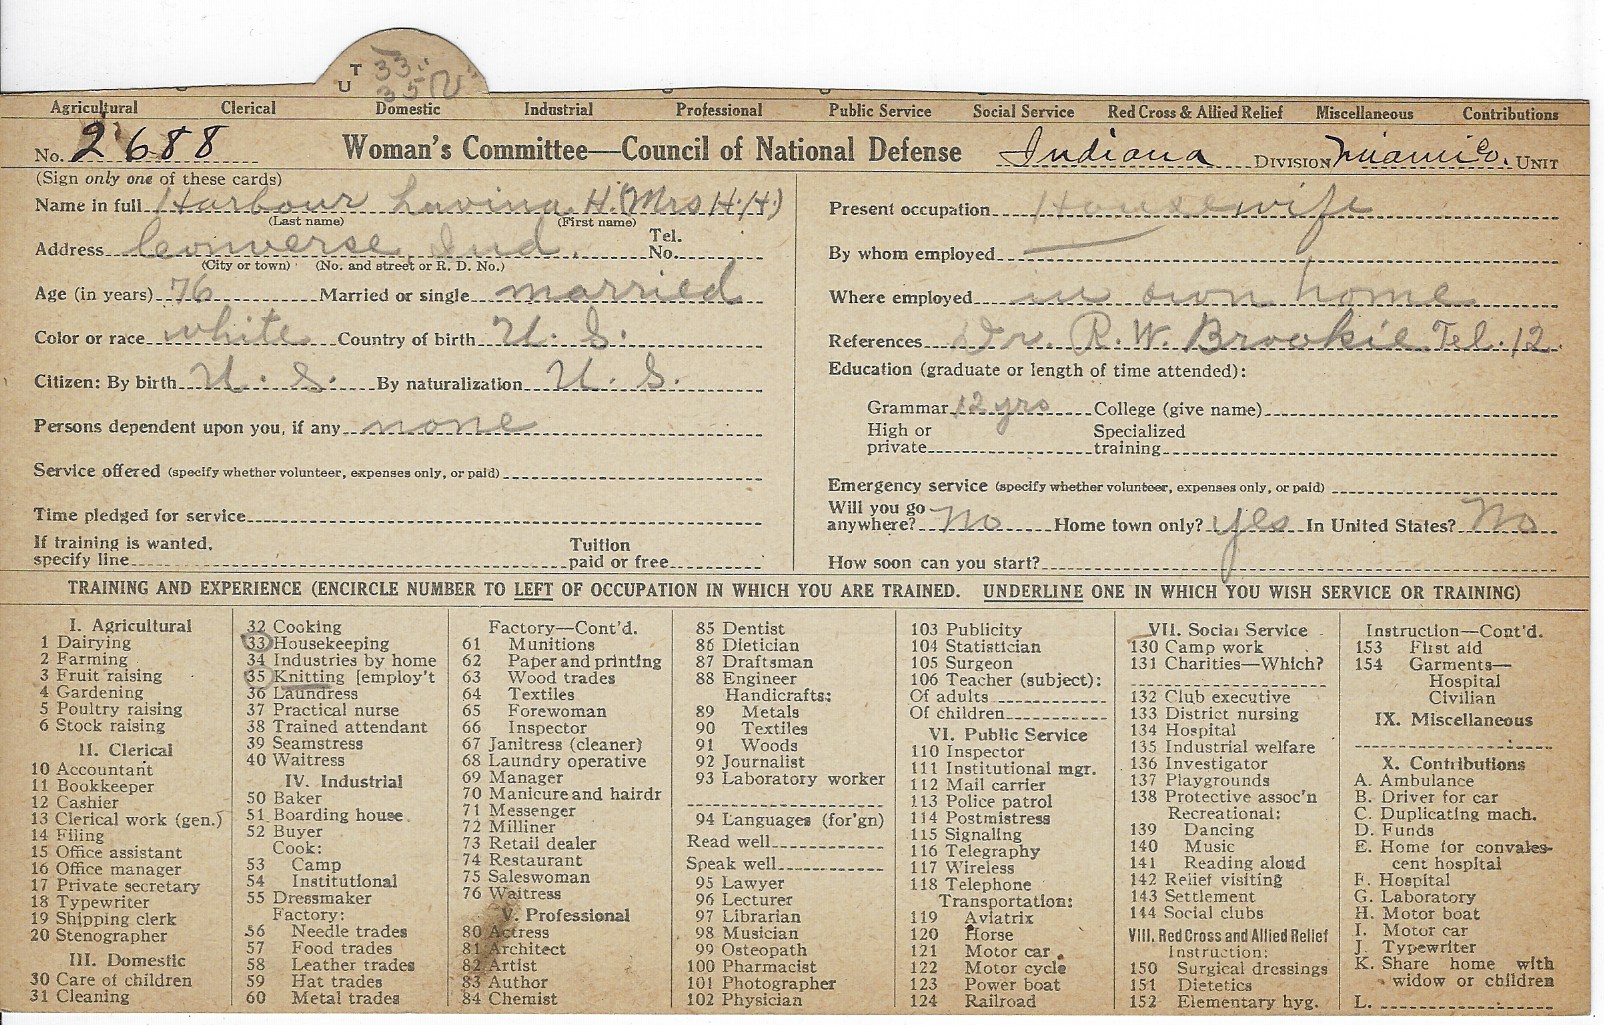 T 33
U 35
Agricultural Clerical Domestic Industrial Professional Public Service Social Service Red Cross & Allied Relief Miscellaneous Contributions
No. 2688 Woman's Committee—Council of National Defense Indiana DIVISION Miami Co. UNIT
(Sign only one of these cards)
Name in full Harbour Lavina H. (Mrs H. H.)
(Last name) (First name)
Address Converse Ind. Tel. No.
(City or town) (No. and street or R. D. No.)
Age (in years) 76 Married or single married
Color or race white Country of birth U. S.
Citizen: By birth U. S. By naturalization U. S.
Persons dependent upon you, if any none
Service offered (specify whether volunteer, expenses only, or paid)
Time pledged for service
If training is wanted, specify line Tuition paid or free
Present occupation Housewife
By whom employed
Where employed in own home
References Dr. R. W. Brookie Tel. 12.
Education (graduate or length of time attended):
Grammar 12 yrs College (give name)
High or private Specialized training
Emergency service (specify whether volunteer, expenses only, or paid)
Will you go anywhere? No Home town only? yes In United States? No
How soon can you start?
TRAINING AND EXPERIENCE (ENCIRCLE NUMBER TO LEFT OF OCCUPATION IN WHICH YOU ARE TRAINED. UNDERLINE ONE IN WHICH YOU WISH SERVICE OR TRAINING)
I. Agricultural
1 Dairying
2 Farming
3 Fruit raising
4 Gardening
5 Poultry raising
6 Stock raising
II. Clerical
10 Accountant
11 Bookkeeper
12 Cashier
13 Clerical work (gen.)
14 Filing
15 Office assistant
16 Office manager
17 Private secretary
18 Typewriter
19 Shipping clerk
20 Stenographer
III. Domestic
30 Care of children
31 Cleaning
32 Cooking
33 Housekeeping
34 Industries by home
35 Knitting [employ't
36 Laundress
37 Practical nurse
38 Trained attendant
39 Seamstress
40 Waitress
IV. Industrial
50 Baker
51 Boarding house
52 Buyer
Cook:
53 Camp
54 Institutional
55 Dressmaker
Factory:
56 Needle trades
57 Food trades
58 Leather trades
59 Hat trades
60 Metal trades
Factory—Cont'd.
61 Munitions
62 Paper and printing
63 Wood trades
64 Textiles
65 Forewoman
66 Inspector
67 Janitress (cleaner)
68 Laundry operative
69 Manager
70 Manicure and hairdr
71 Messenger
72 Milliner
73 Retail dealer
74 Restaurant
75 Saleswoman
76 Waitress
V. Professional
80 Actress
81 Architect
82 Artist
83 Author
84 Chemist
85 Dentist
86 Dietician
87 Draftsman
88 Engineer
Handicrafts:
89 Metals
90 Textiles
91 Woods
92 Journalist
93 Laboratory worker
94 Languages (for'gn)
Read well
Speak well
95 Lawyer
96 Lecturer
97 Librarian
98 Musician
99 Osteopath
100 Pharmacist
101 Photographer
102 Physician
103 Publicity
104 Statistician
105 Surgeon
106 Teacher (subject):
Of adults
Of children
VI. Public Service
110 Inspector
111 Institutional mgr.
112 Mail carrier
113 Police patrol
114 Postmistress
115 Signaling
116 Telegraphy
117 Wireless
118 Telephone
Transportation:
119 Aviatrix
120 Horse
121 Motor car
122 Motor cycle
123 Power boat
124 Railroad
VII. Social Service
130 Camp work
131 Charities—Which?
132 Club executive
133 District nursing
134 Hospital
135 Industrial welfare
136 Investigator
137 Playgrounds
138 Protective assoc'n
Recreational:
139 Dancing
140 Music
141 Reading aloud
142 Relief visiting
143 Settlement
144 Social clubs
VIII. Red Cross and Allied Relief
Instruction:
150 Surgical dressings
151 Dietetics
152 Elementary hyg.
Instruction—Cont'd.
153 First aid
154 Garments—
Hospital
Civilian
IX. Miscellaneous
X. Contributions
A. Ambulance
B. Driver for car
C. Duplicating mach.
D. Funds
E. Home for convales-
cent hospital
F. Hospital
G. Laboratory
H. Motor boat
I. Motor car
J. Typewriter
K. Share home with
widow or children
L.